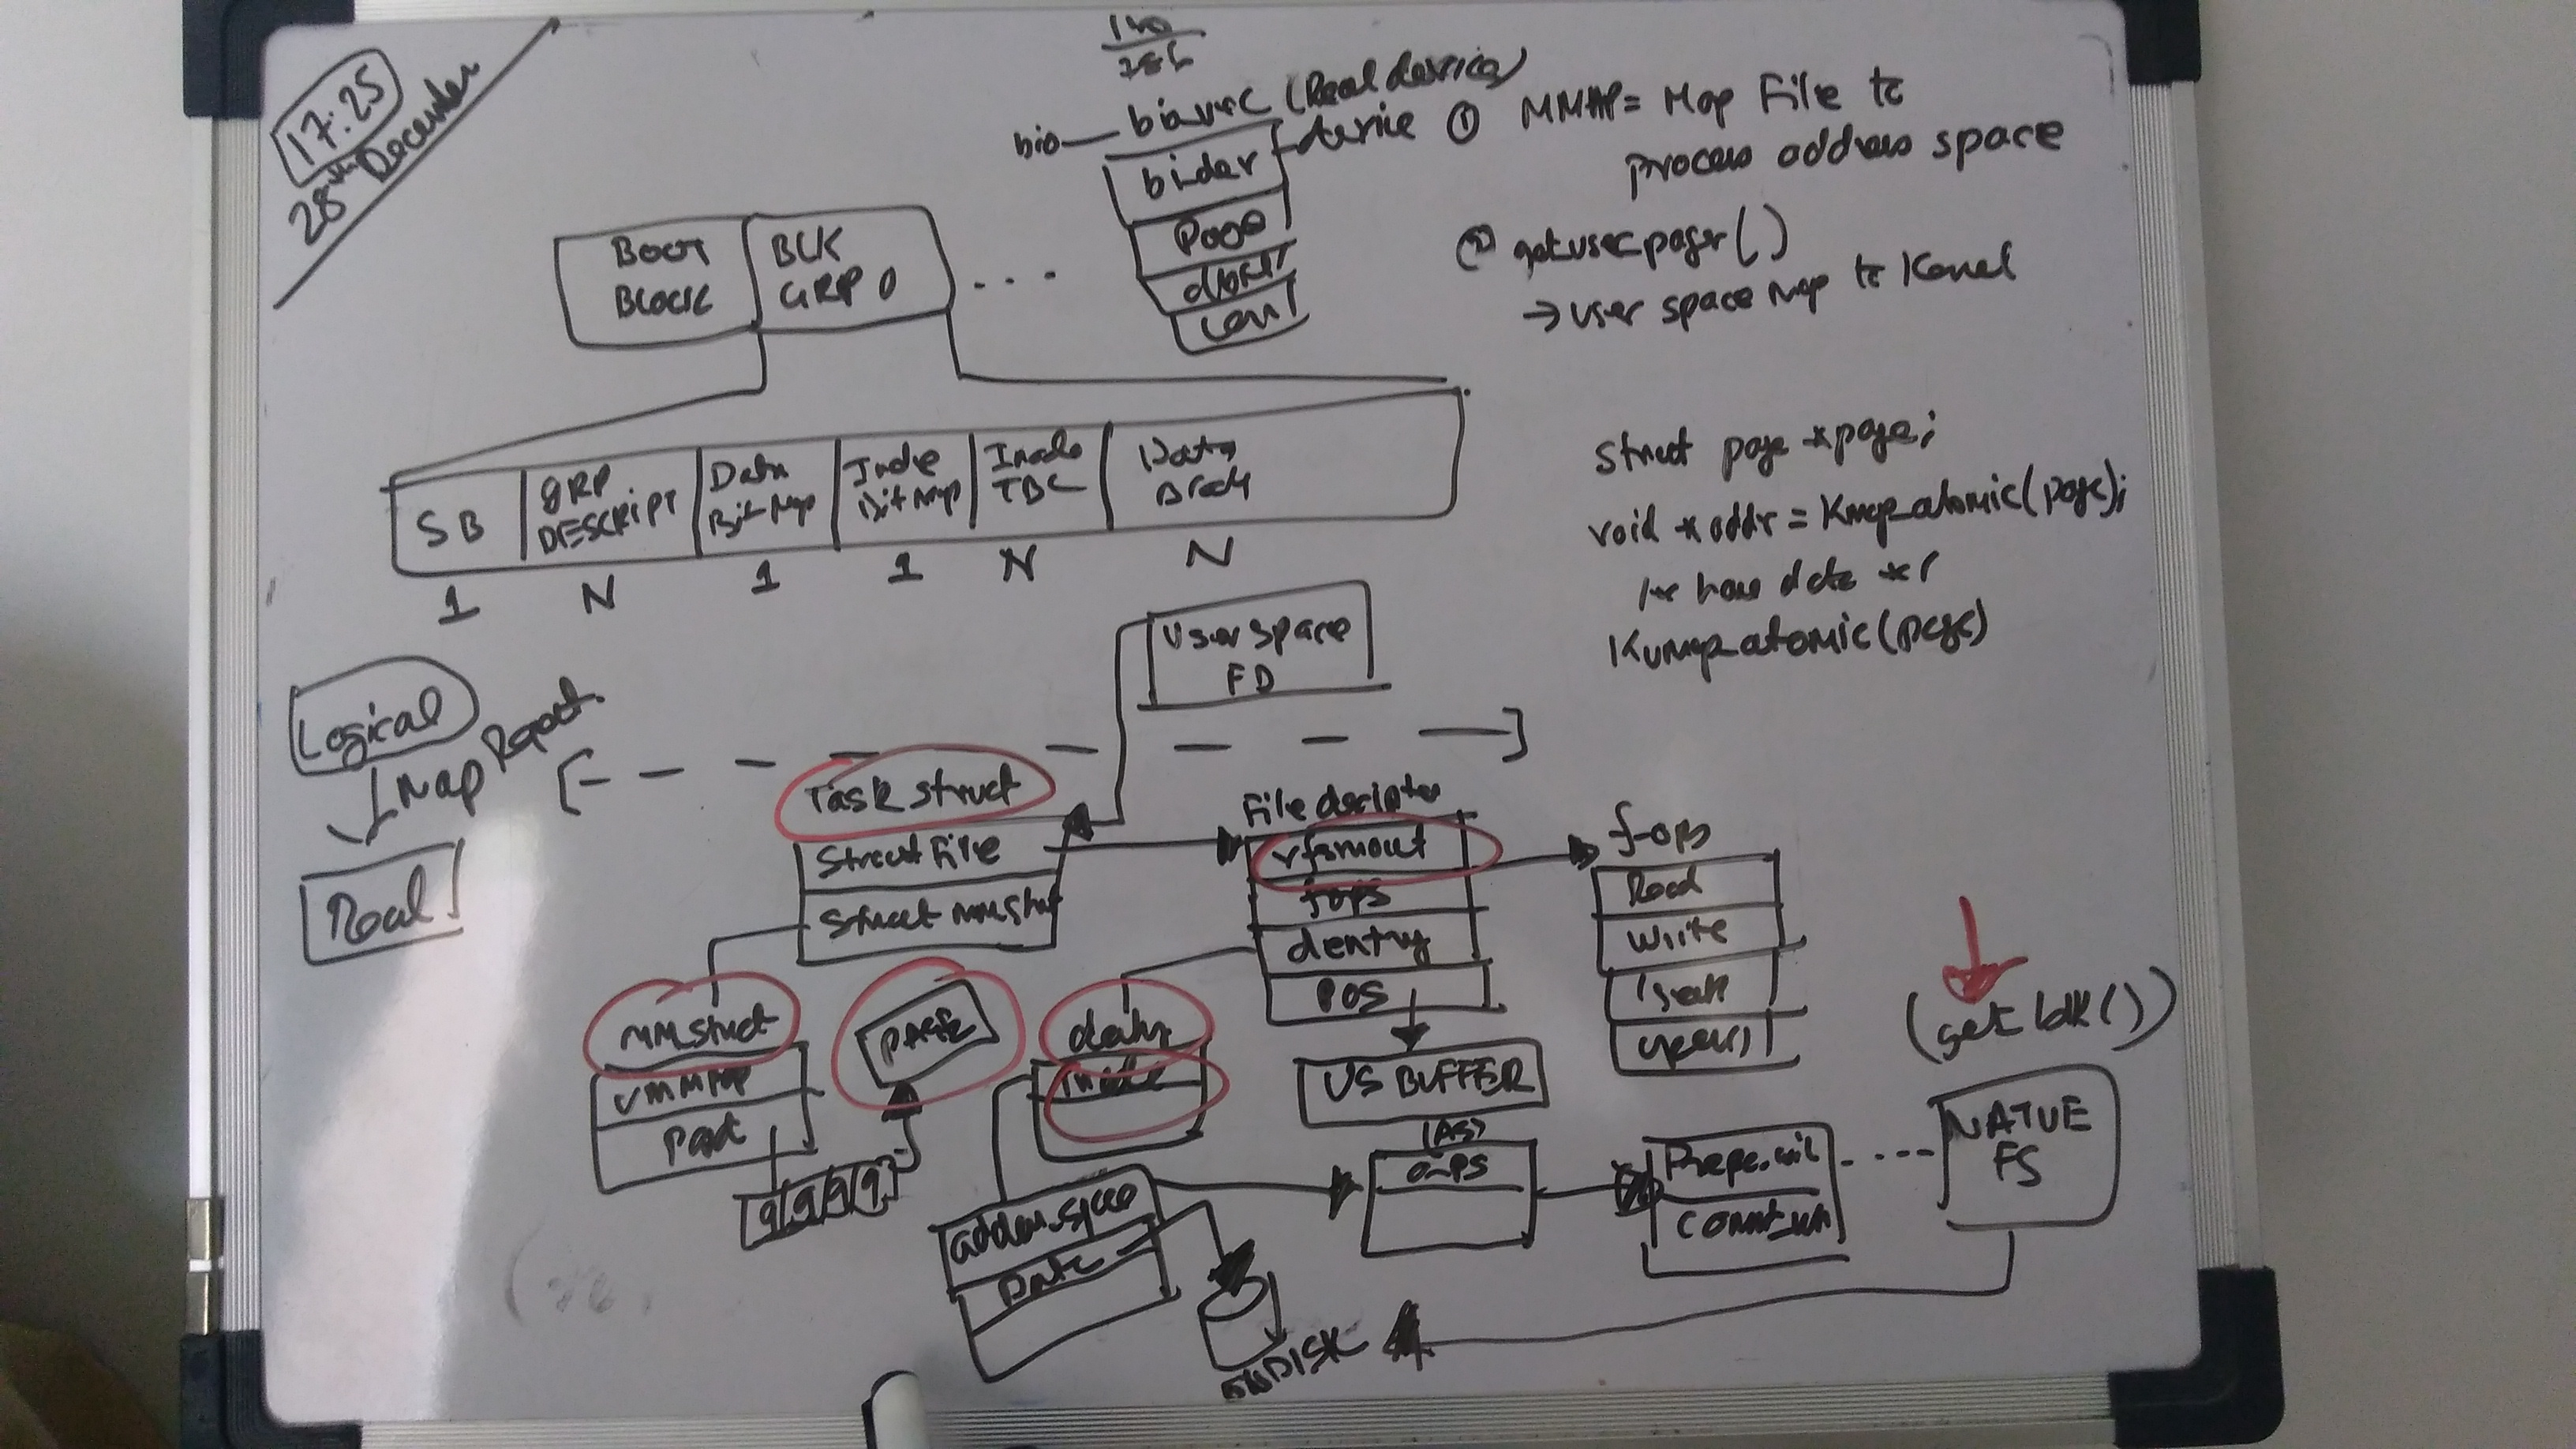 17:25
28th December
bio
biovec (Real device)
bidev
device
Page
Len
① MMAP = Map File to
Process address space
② getuserpages()
→ user space Map to Kernel
BOOT
BLOCK
BLK
GRP 0
...
SB
GRP
DESCRIPT
Data
BitMap
Inode
BitMap
Inode
TBL
Data
Block
1
N
1
1
N
N
Struct page *page;
void *addr = Kmap_atomic(page);
/* have data */
Kumap_atomic(page)
User Space
FD
Logical
Map
Real
Task struct
Struct File
Struct MMStruct
File descriptor
vfsmount
fops
dentry
POS
f-ops
Read
Write
open()
MM struct
PAGE
inode
US BUFFER
(AS)
(get blk())
NATIVE
FS
address_space
DISK